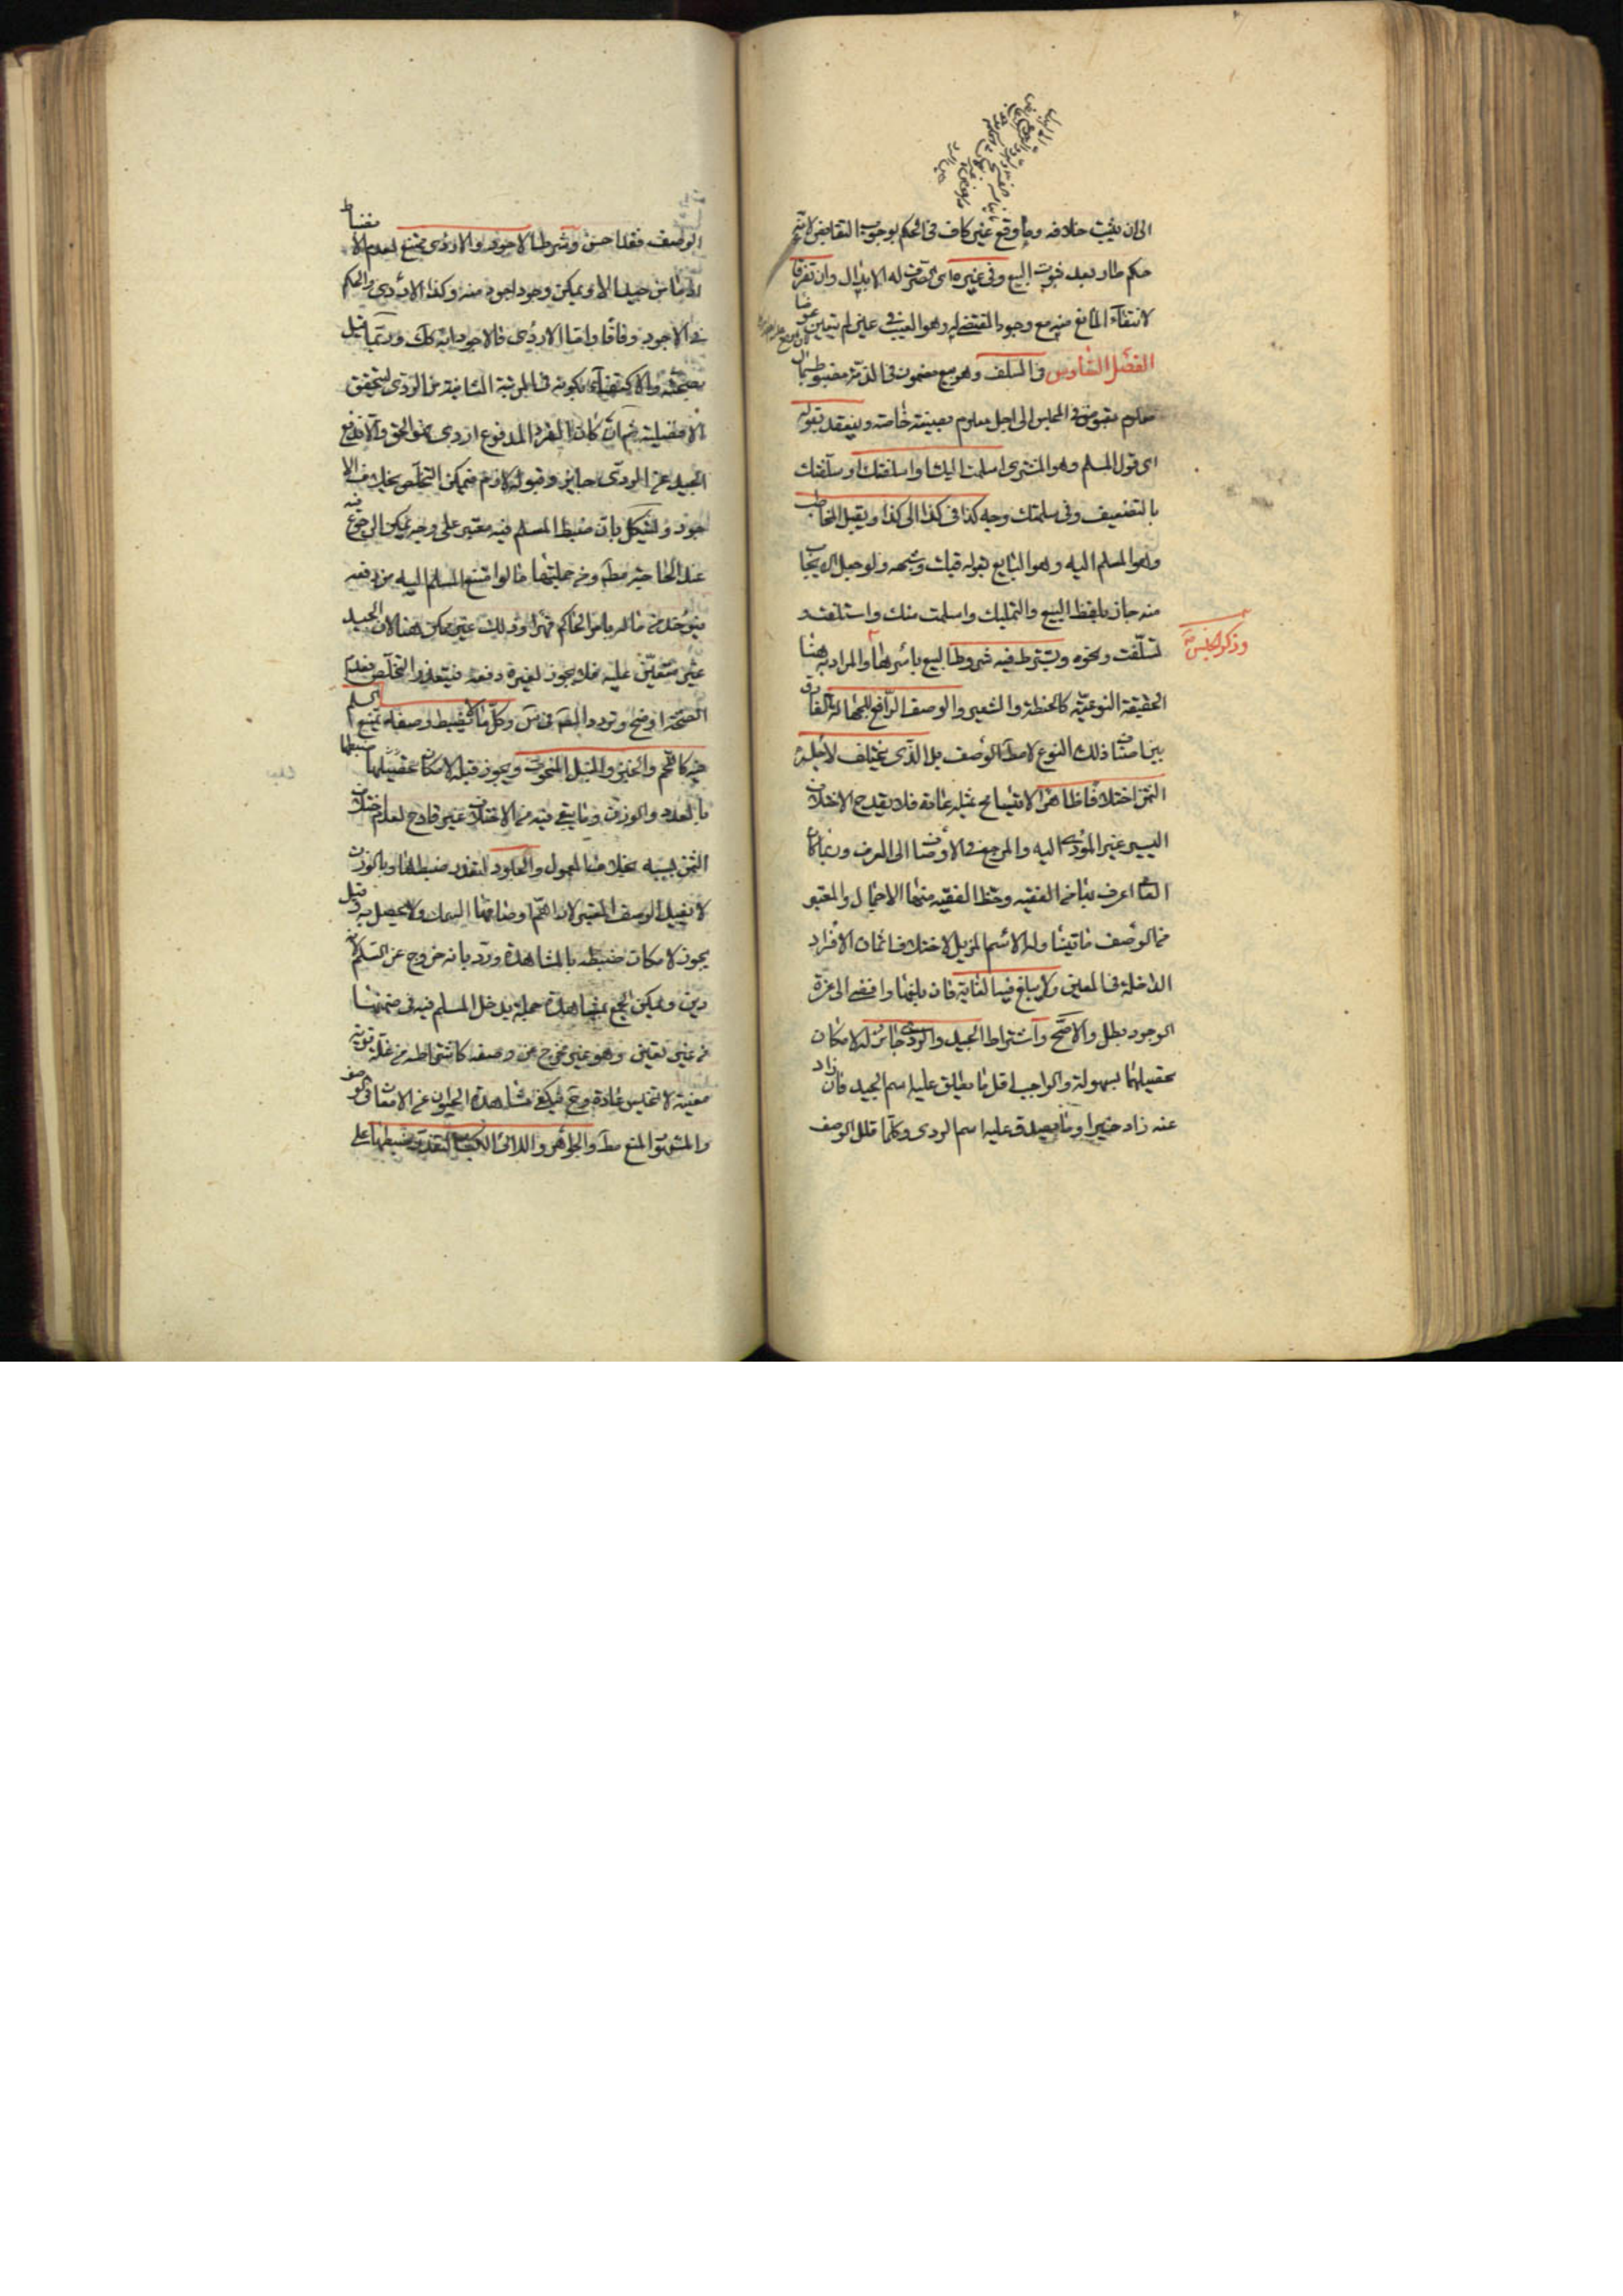 الى ان يثبت خلافه وما وقع غير كاف فى الحكم بوجوب التقابض لانه
حكم طار بعد ثبوت البيع وفى غيره اى الصرف له الابدال وان تفرقا
لانتفاء المانع منه مع وجود المقتضى له وهو العيب فى عين لم يتعين عوضا
الفصل السادس فى السلف وهو بيع مضمون فى الذمة مضبوط بمال
معلوم مقبوض فى المجلس الى اجل معلوم بصيغة خاصة وينعقد بقوله
اى قول المسلم وهو المشترى اسلمت اليك او اسلفتك او سلفتك
بالتضعيف وفى سلمتك وجه كذا فى كذا الى كذا ويقبل المخاطب
وهو المسلم اليه وهو البايع بقوله قبلت وشبهه ولو جعل الايجاب
منه جاز بلفظ البيع والتمليك واسلمت منك واستلفت
وتسلفت ونحوه ويشترط فيه شروط البيع باسرها والمراد به هنا
وذكر الجنس
الحقيقة النوعية كالحنطة والشعير والوصف الرافع للجهالة الفارق
بين اصناف ذلك النوع لا مط الوصف بل الذى يختلف لاجله
الثمن اختلافا ظاهرا لا يتسامح بمثله عادة فلا يقدح الاختلاف
اليسير غير المؤدى اليه والمرجع فى الاوصاف الى العرف وربما كان
العامى اعرف بها من الفقيه وحظ الفقيه منها الاجمال والمعتبر
من الوصف ما يتناوله الاسم المزيل لاختلاف اثمان الافراد
الداخلة فى المعين ولا يبلغ فيه الغاية فان بلغها وافضى الى عزة
الوجود بطل والا صح واشتراط الجيد والردى جائز لامكان
تحصيلهما بسهولة والواجب اقل ما يطلق عليه اسم الجيد فان زاد
عنه زاد خيرا وما يصدق عليه اسم الردى وكلما قلل الوصف
الوصف فقد احسن وشرط الاجود والاردى يمتنع لعدم الانضباط
اذ ما من جيد الا ويمكن وجود اجود منه وكذا الاردى والحكم
فى الاجود وفاقا واما الاردى فالاجود انه كك وربما قيل
بصحته والاكتفاء بكونه فى المرتبة الثانية من الردى ليتحقق
الافضلية ثم ان كان الفرد المدفوع اردى فهو الحق والا فدفع
الجيد عن الردى جايز وقبوله لازم فيمكن التخلص بخلاف الا
جود ويشكل بان ضبط المسلم فيه معتبر على وجه يمكن الرجوع فيه
عند الحاجة مط ومن جملتها ما لو امتنع المسلم اليه من دفعه
فيؤخذ من ماله بامر الحاكم قهرا وذلك غير ممكن هنا لان الجيد
غير متعين عليه فلا يجوز لغيره دفعه فيتعذر التخلص فعدم
الصحة اوضح وتردد المص فى س وكلما لا يضبط وصفه يمتنع السلم
فيه كاللحم والخبز والنبل المنحوت ويجوز قبله لامكان ضبطها
بالعدد والوزن وما يبقى فيه من الاختلاف غير قادح لعدم اختلاف
الثمن بسببه بخلاف المعمول والجلود لتعذر ضبطها وبالوزن
لا يفيد الوصف المعتبر لان اهم اوصافها السمك ولا يحصل به وقيل
يجوز لامكان ضبطه بالمشاهدة ورد بانه خروج عن السلم لانه
دين ويمكن الجمع بمشاهدة جملة يدخل المسلم فيه فى ضمنها
من غير تعيين وهو غير مخرج عن وصفه كاشتراطه من غلة قرية
معينة لا تخيس عادة وح فيكفى مشاهدة الحيوان عن الامعان فى الوصف
والمشهور المنع مط والجواهر واللالى الكبار لتعذر ضبطها على